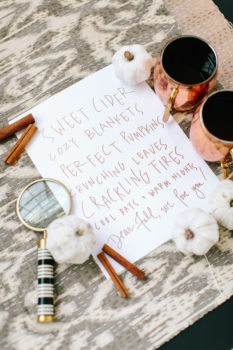 SWEET CIDER
COZY BLANKETS
PERFECT PUMPKINS
CRUNCHING LEAVES
CRACKLING FIRES
COOL DAYS + WARM NIGHTS
Dear Fall, we love you!